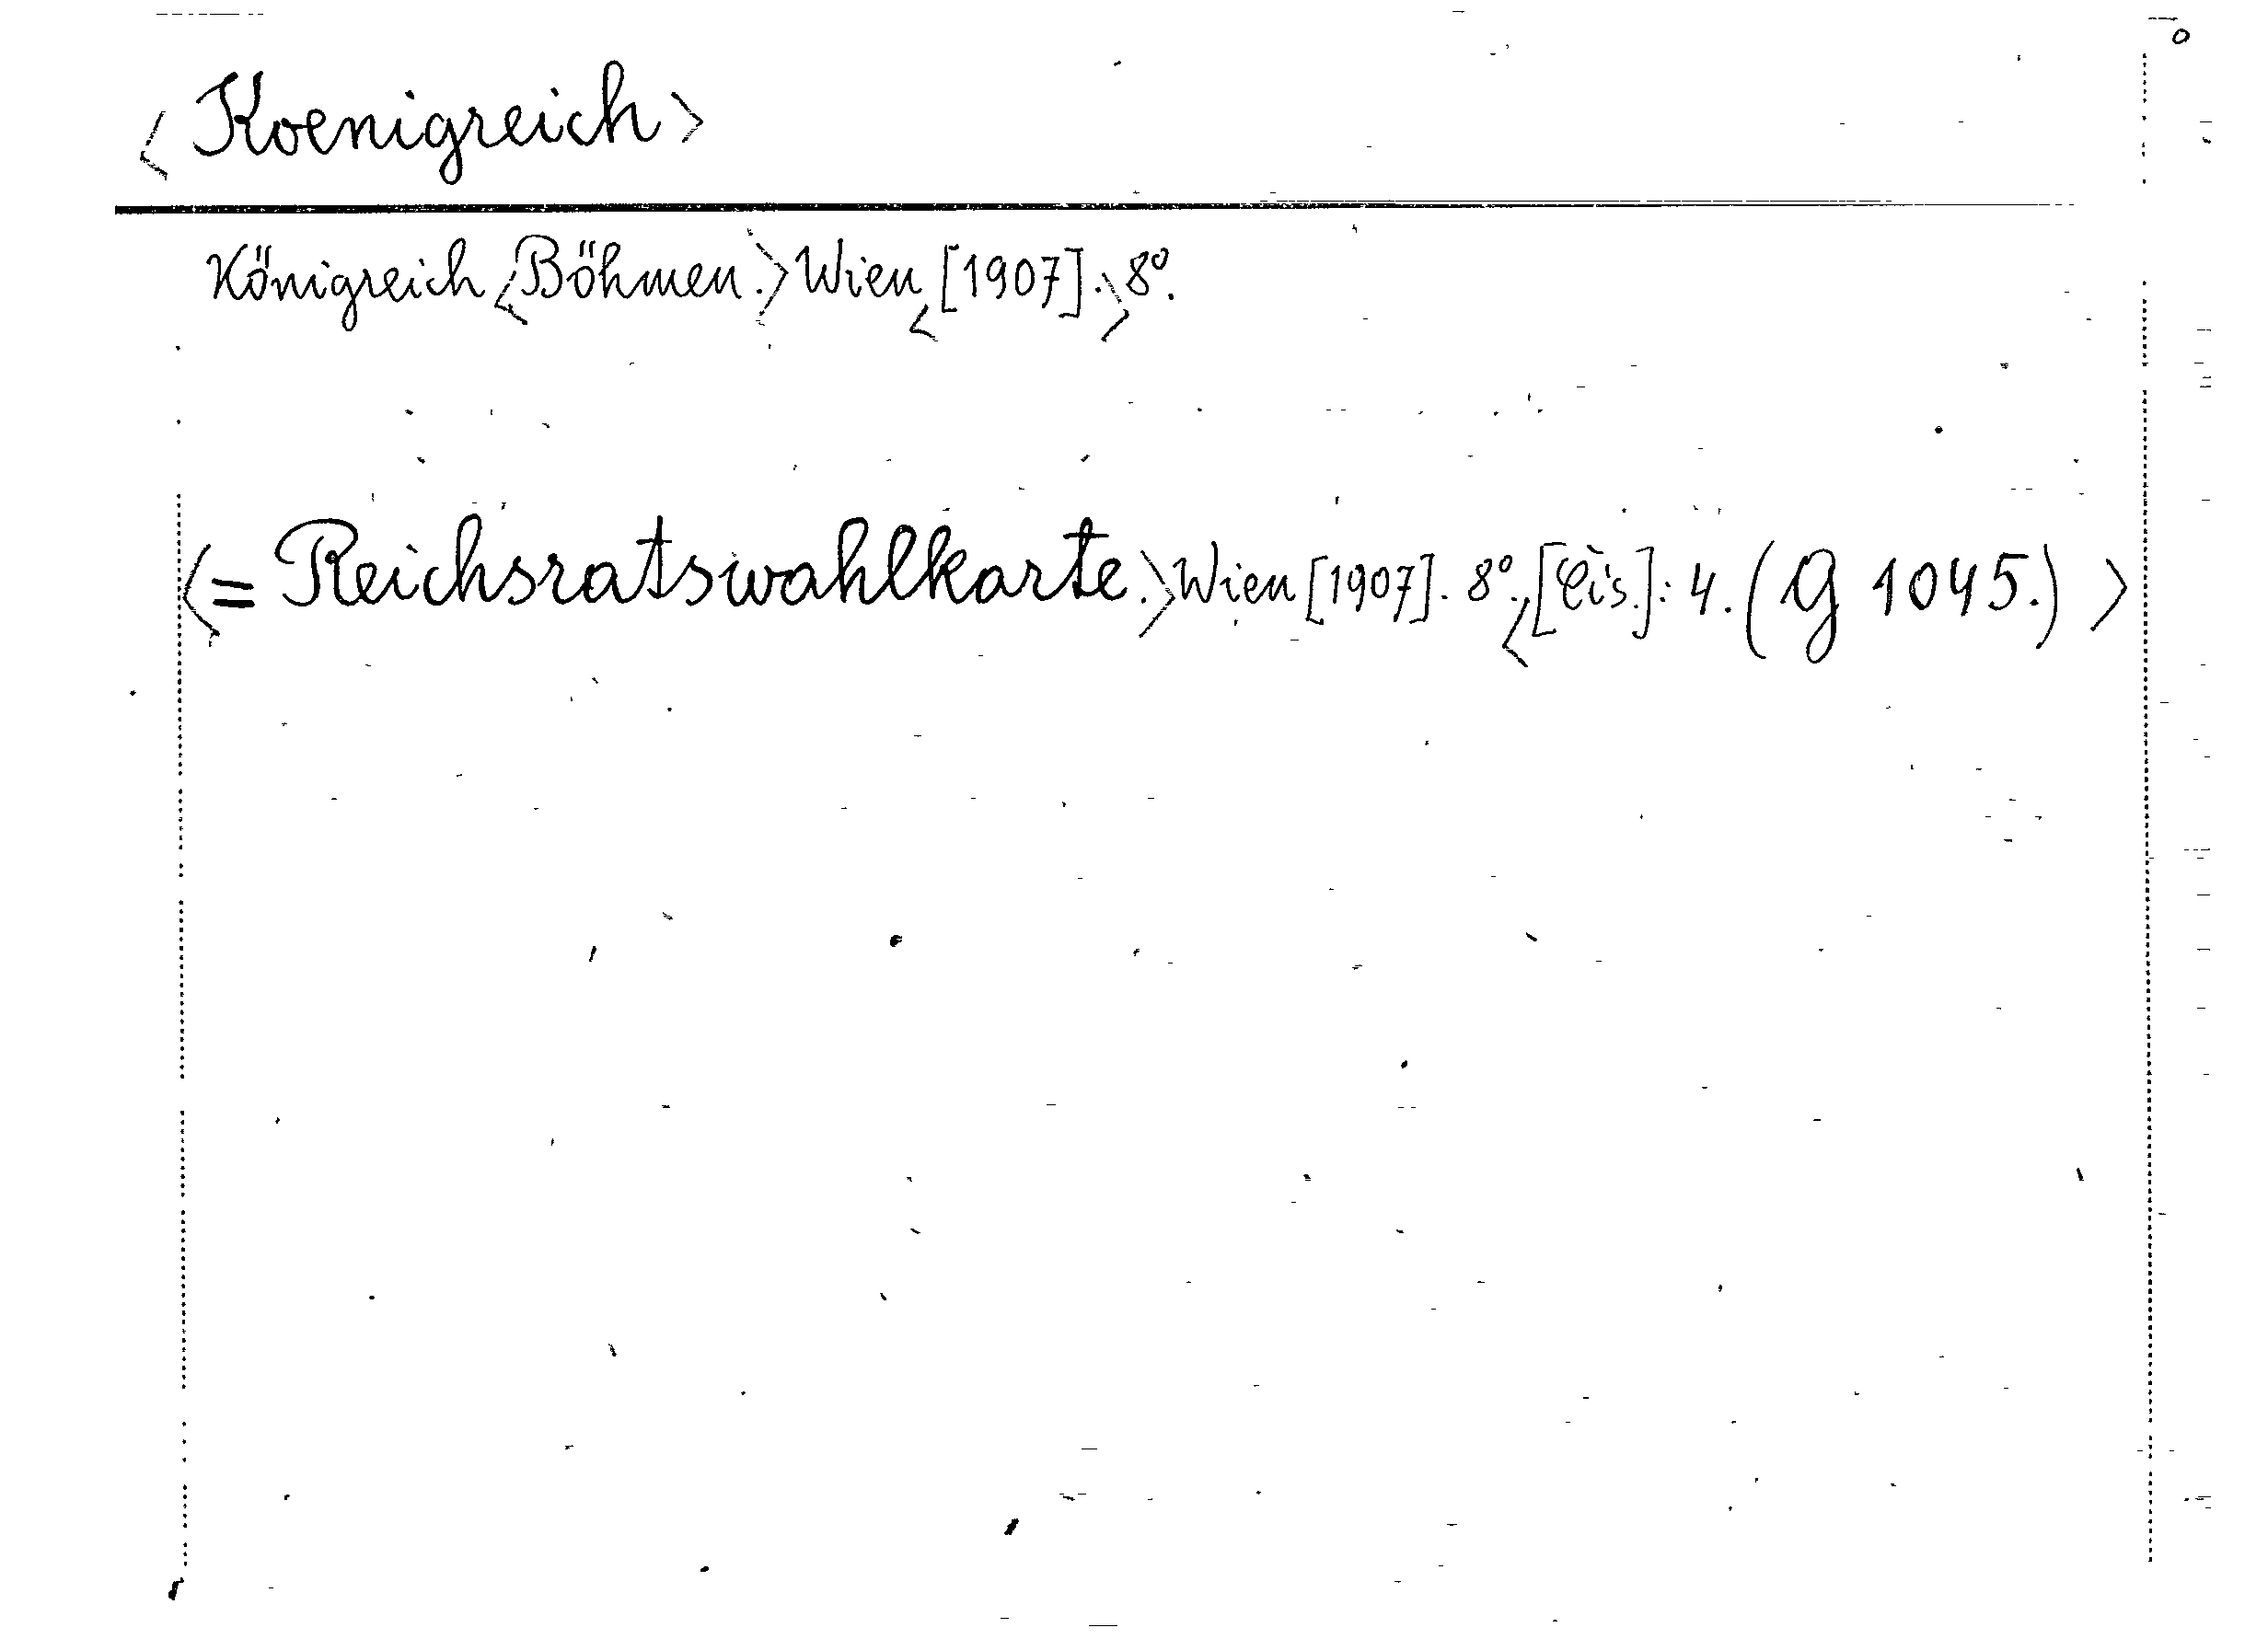 <Koenigreich>
Königreich <Böhmen.> Wien <[1907].> 8°.
<= Reichsratswahlkarte.> Wien [1907]. 8°. <[Cis.]: 4. (G 1045.)>